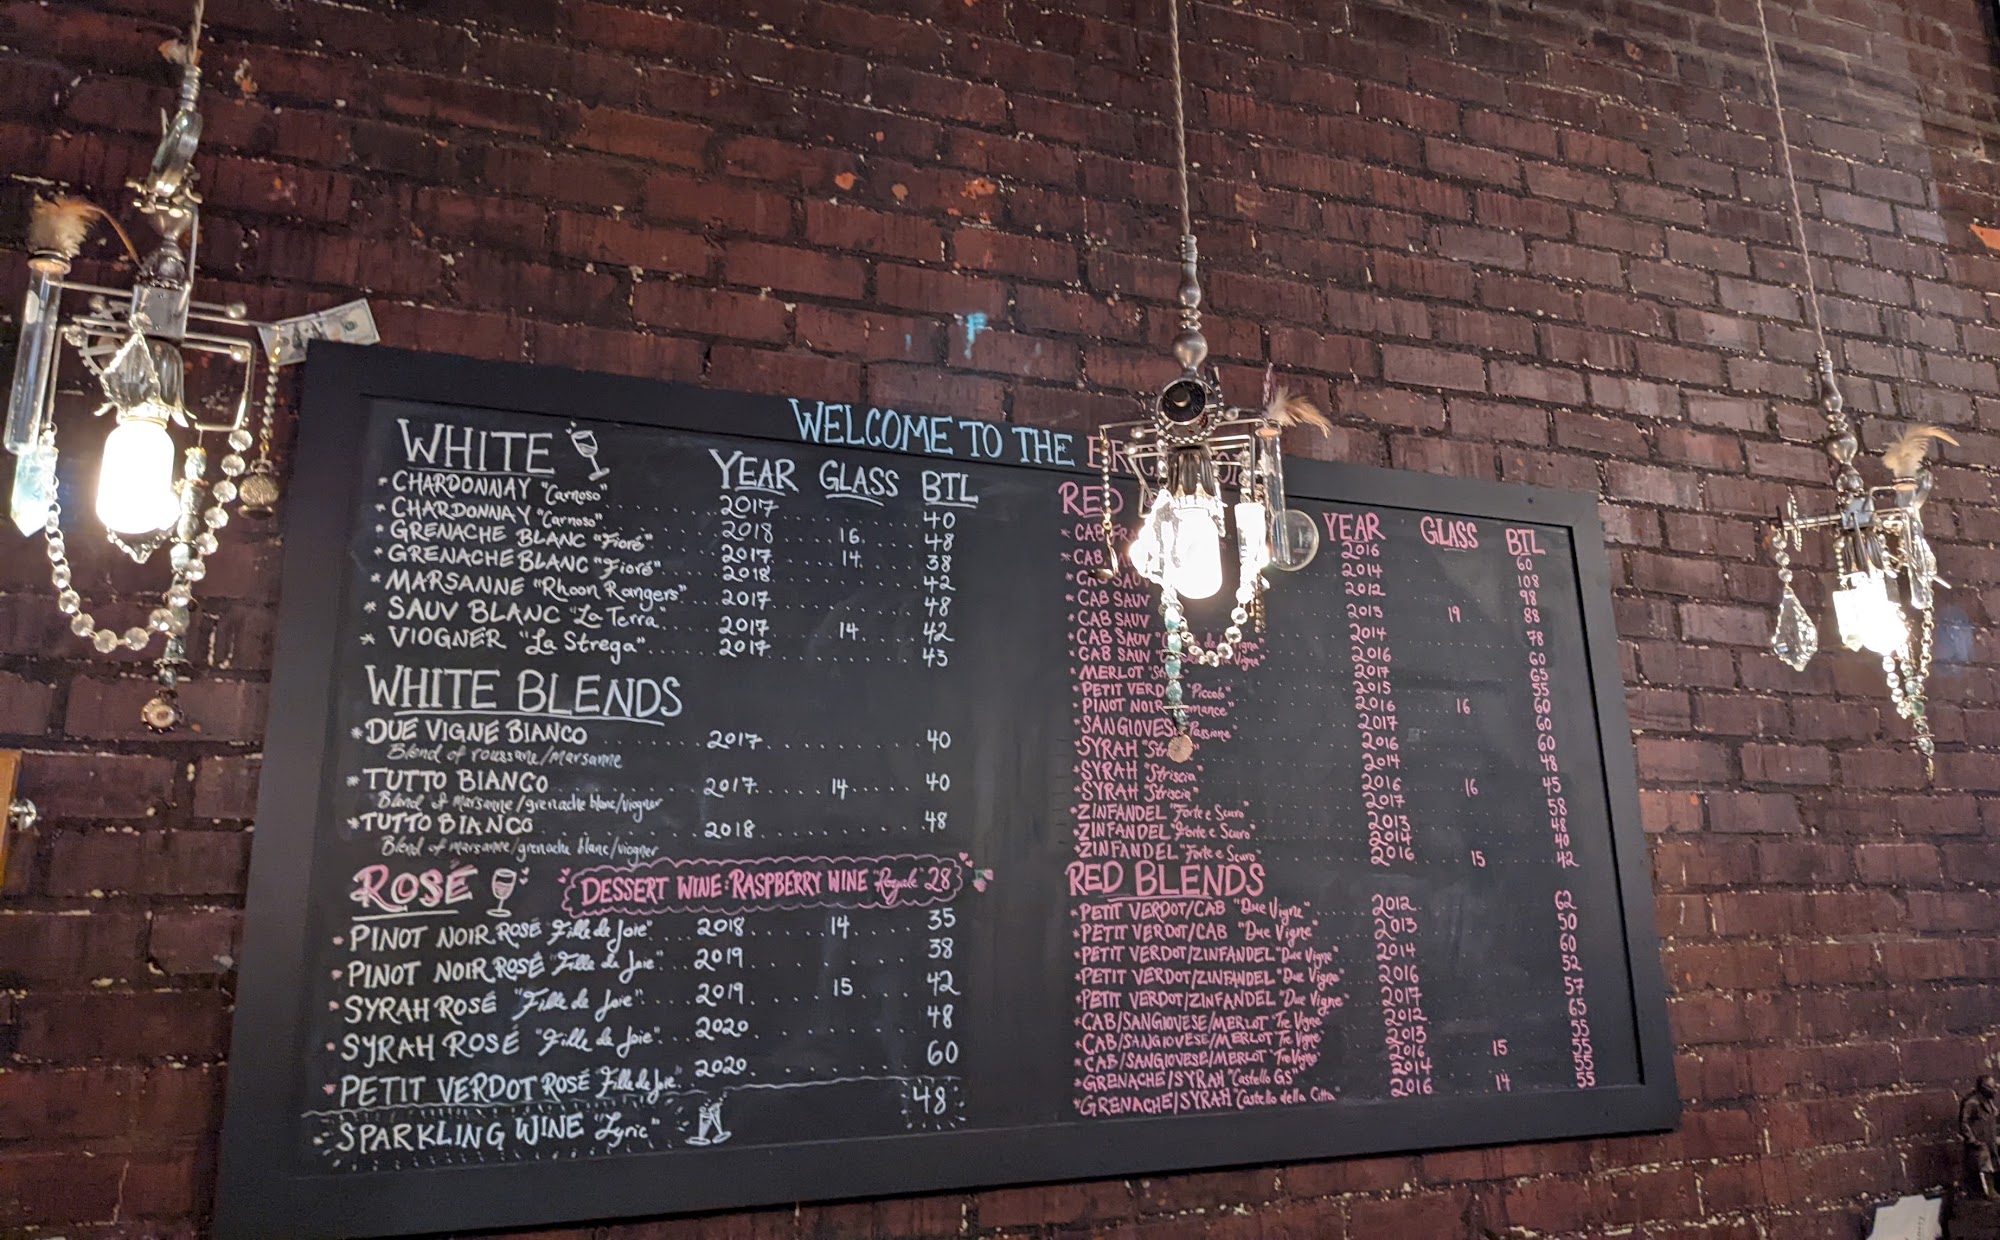 WELCOME TO THE
WHITE YEAR GLASS BTL
* CHARDONNAY "Carnoso" 2017 40
* CHARDONNAY "Carnoso" 2018 16 48
* GRENACHE BLANC "Fioré" 2017 14 38
* GRENACHE BLANC "Fioré" 2018 42
* MARSANNE "Rhoon Rangers" 2017 48
* SAUV BLANC "La Terra" 2017 14 42
* VIOGNER "La Strega" 2017 43
WHITE BLENDS
* DUE VIGNE BIANCO 2017 40
Blend of roussane/marsanne
* TUTTO BIANCO 2017 14 40
Blend of marsanne/grenache blanc/viogner
* TUTTO BIANCO 2018 48
Blend of marsanne/grenache blanc/viogner
ROSÉ
DESSERT WINE: RASPBERRY WINE "Royale" 28
* PINOT NOIR ROSÉ "Fille de Joie" 2018 14 35
* PINOT NOIR ROSÉ "Fille de Joie" 2019 38
* SYRAH ROSÉ "Fille de Joie" 2019 15 42
* SYRAH ROSÉ "Fille de Joie" 2020 48
* PETIT VERDOT ROSÉ "Fille de Joie" 2020 60
* SPARKLING WINE "Lyric" 48
RED YEAR GLASS BTL
* CAB 2016 60
* CAB 2014 108
* CAB SAUV 2012 98
* CAB SAUV 2013 19 88
* CAB SAUV 2014 78
* CAB SAUV 2016 60
* CAB SAUV 2017 65
* MERLOT 2015 55
* PETIT VERDOT "Piccolo" 2016 16 60
* PINOT NOIR "Romance" 2017 60
* SANGIOVESE "Passione" 2016 60
* SYRAH 2014 48
* SYRAH "Striscia" 2016 16 45
* SYRAH "Striscia" 2017 58
* ZINFANDEL "Forte e Scuro" 2013 48
* ZINFANDEL "Forte e Scuro" 2014 40
* ZINFANDEL "Forte e Scuro" 2016 15 42
RED BLENDS
* PETIT VERDOT/CAB "Due Vigne" 2012 62
* PETIT VERDOT/CAB "Due Vigne" 2013 50
* PETIT VERDOT/ZINFANDEL "Due Vigne" 2014 60
* PETIT VERDOT/ZINFANDEL "Due Vigne" 2016 52
* PETIT VERDOT/ZINFANDEL "Due Vigne" 2017 57
* CAB/SANGIOVESE/MERLOT "Tre Vigne" 2012 65
* CAB/SANGIOVESE/MERLOT "Tre Vigne" 2013 55
* CAB/SANGIOVESE/MERLOT "Tre Vigne" 2016 15 55
* GRENACHE/SYRAH "Castello GS" 2014 55
* GRENACHE/SYRAH "Castello della Citta" 2016 14 55